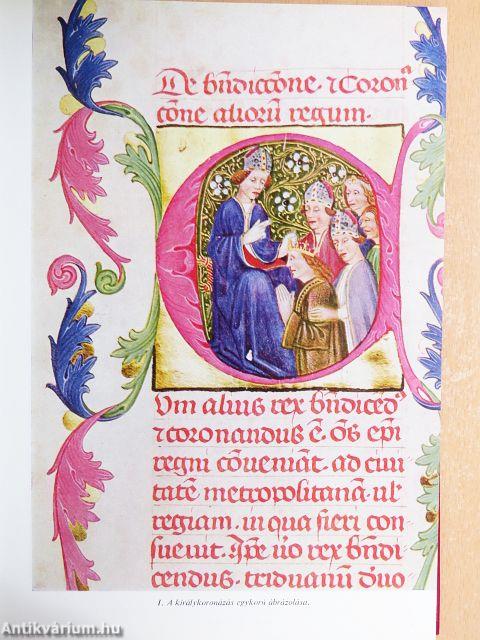 De bn̄diccōne · ⁊ Coronᵃ
cōne alioru̅ regum·
C
Vm alius rex bn̄diced⁹
⁊ coronandus ē· oēs ep̄i
regni cōveniāt· ad ciui
tatē metropolitanā· ul̕
regiam· in qua fieri con
suevit· Ip̄e ūo rex bn̄di
cendus· triduanū d̕uo
1. A királykoronázás egykorú ábrázolása.
Antikvárium.hu